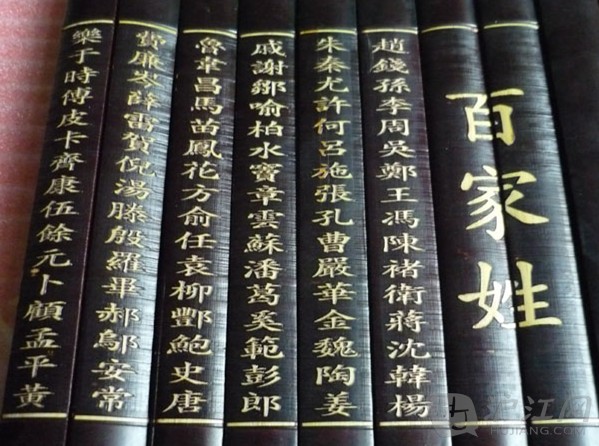 百家姓
趙錢孫李周吳鄭王馮陳褚衛蔣沈韓楊
朱秦尤許何呂施張孔曹嚴華金魏陶姜
戚謝鄒喻柏水竇章雲蘇潘葛奚範彭郎
魯韋昌馬苗鳳花方俞任袁柳酆鮑史唐
費廉岑薛雷賀倪湯滕殷羅畢郝鄔安常
樂于時傅皮卡齊康伍餘元卜顧孟平黃
沪江网
HUJIANG.COM